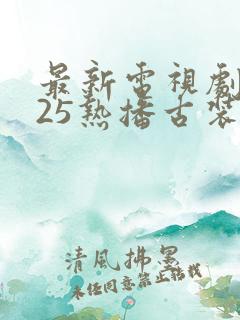 最新電視劇
25熱播古裝
清風拂墨
未任同意禁止轉載